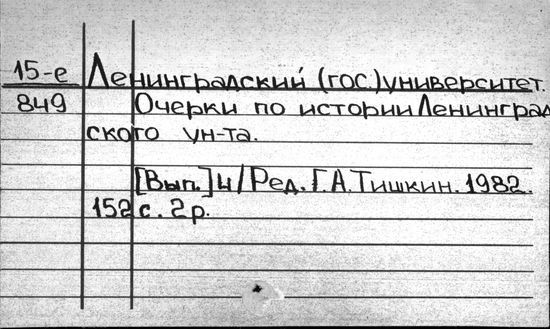 15-е Ленинградский (гос.) университет.
849 Очерки по истории Ленинград
ского ун-та.
[Вып.] 4/Ред. Г.А.Тишкин. 1982.
152 с. 2 р.